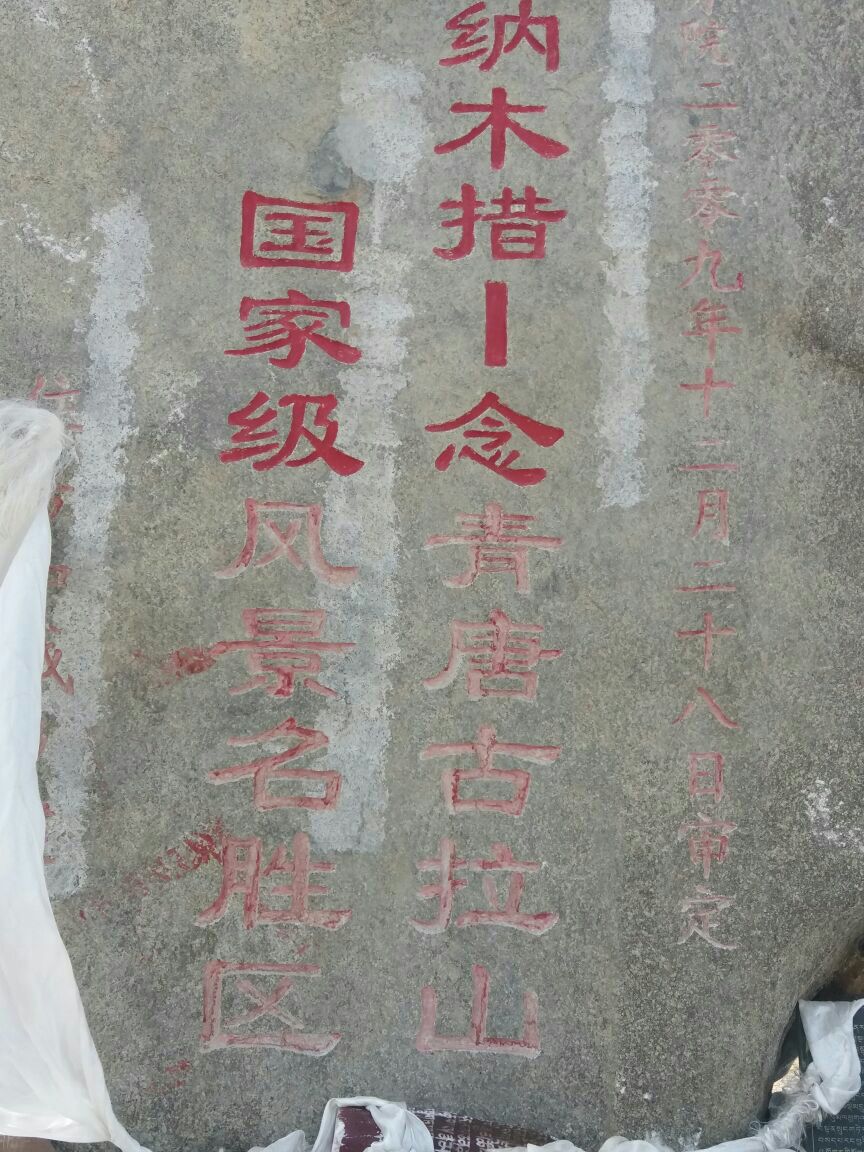 院二零零九年十二月二十八日审定
纳木措—念青唐古拉山
国家级风景名胜区